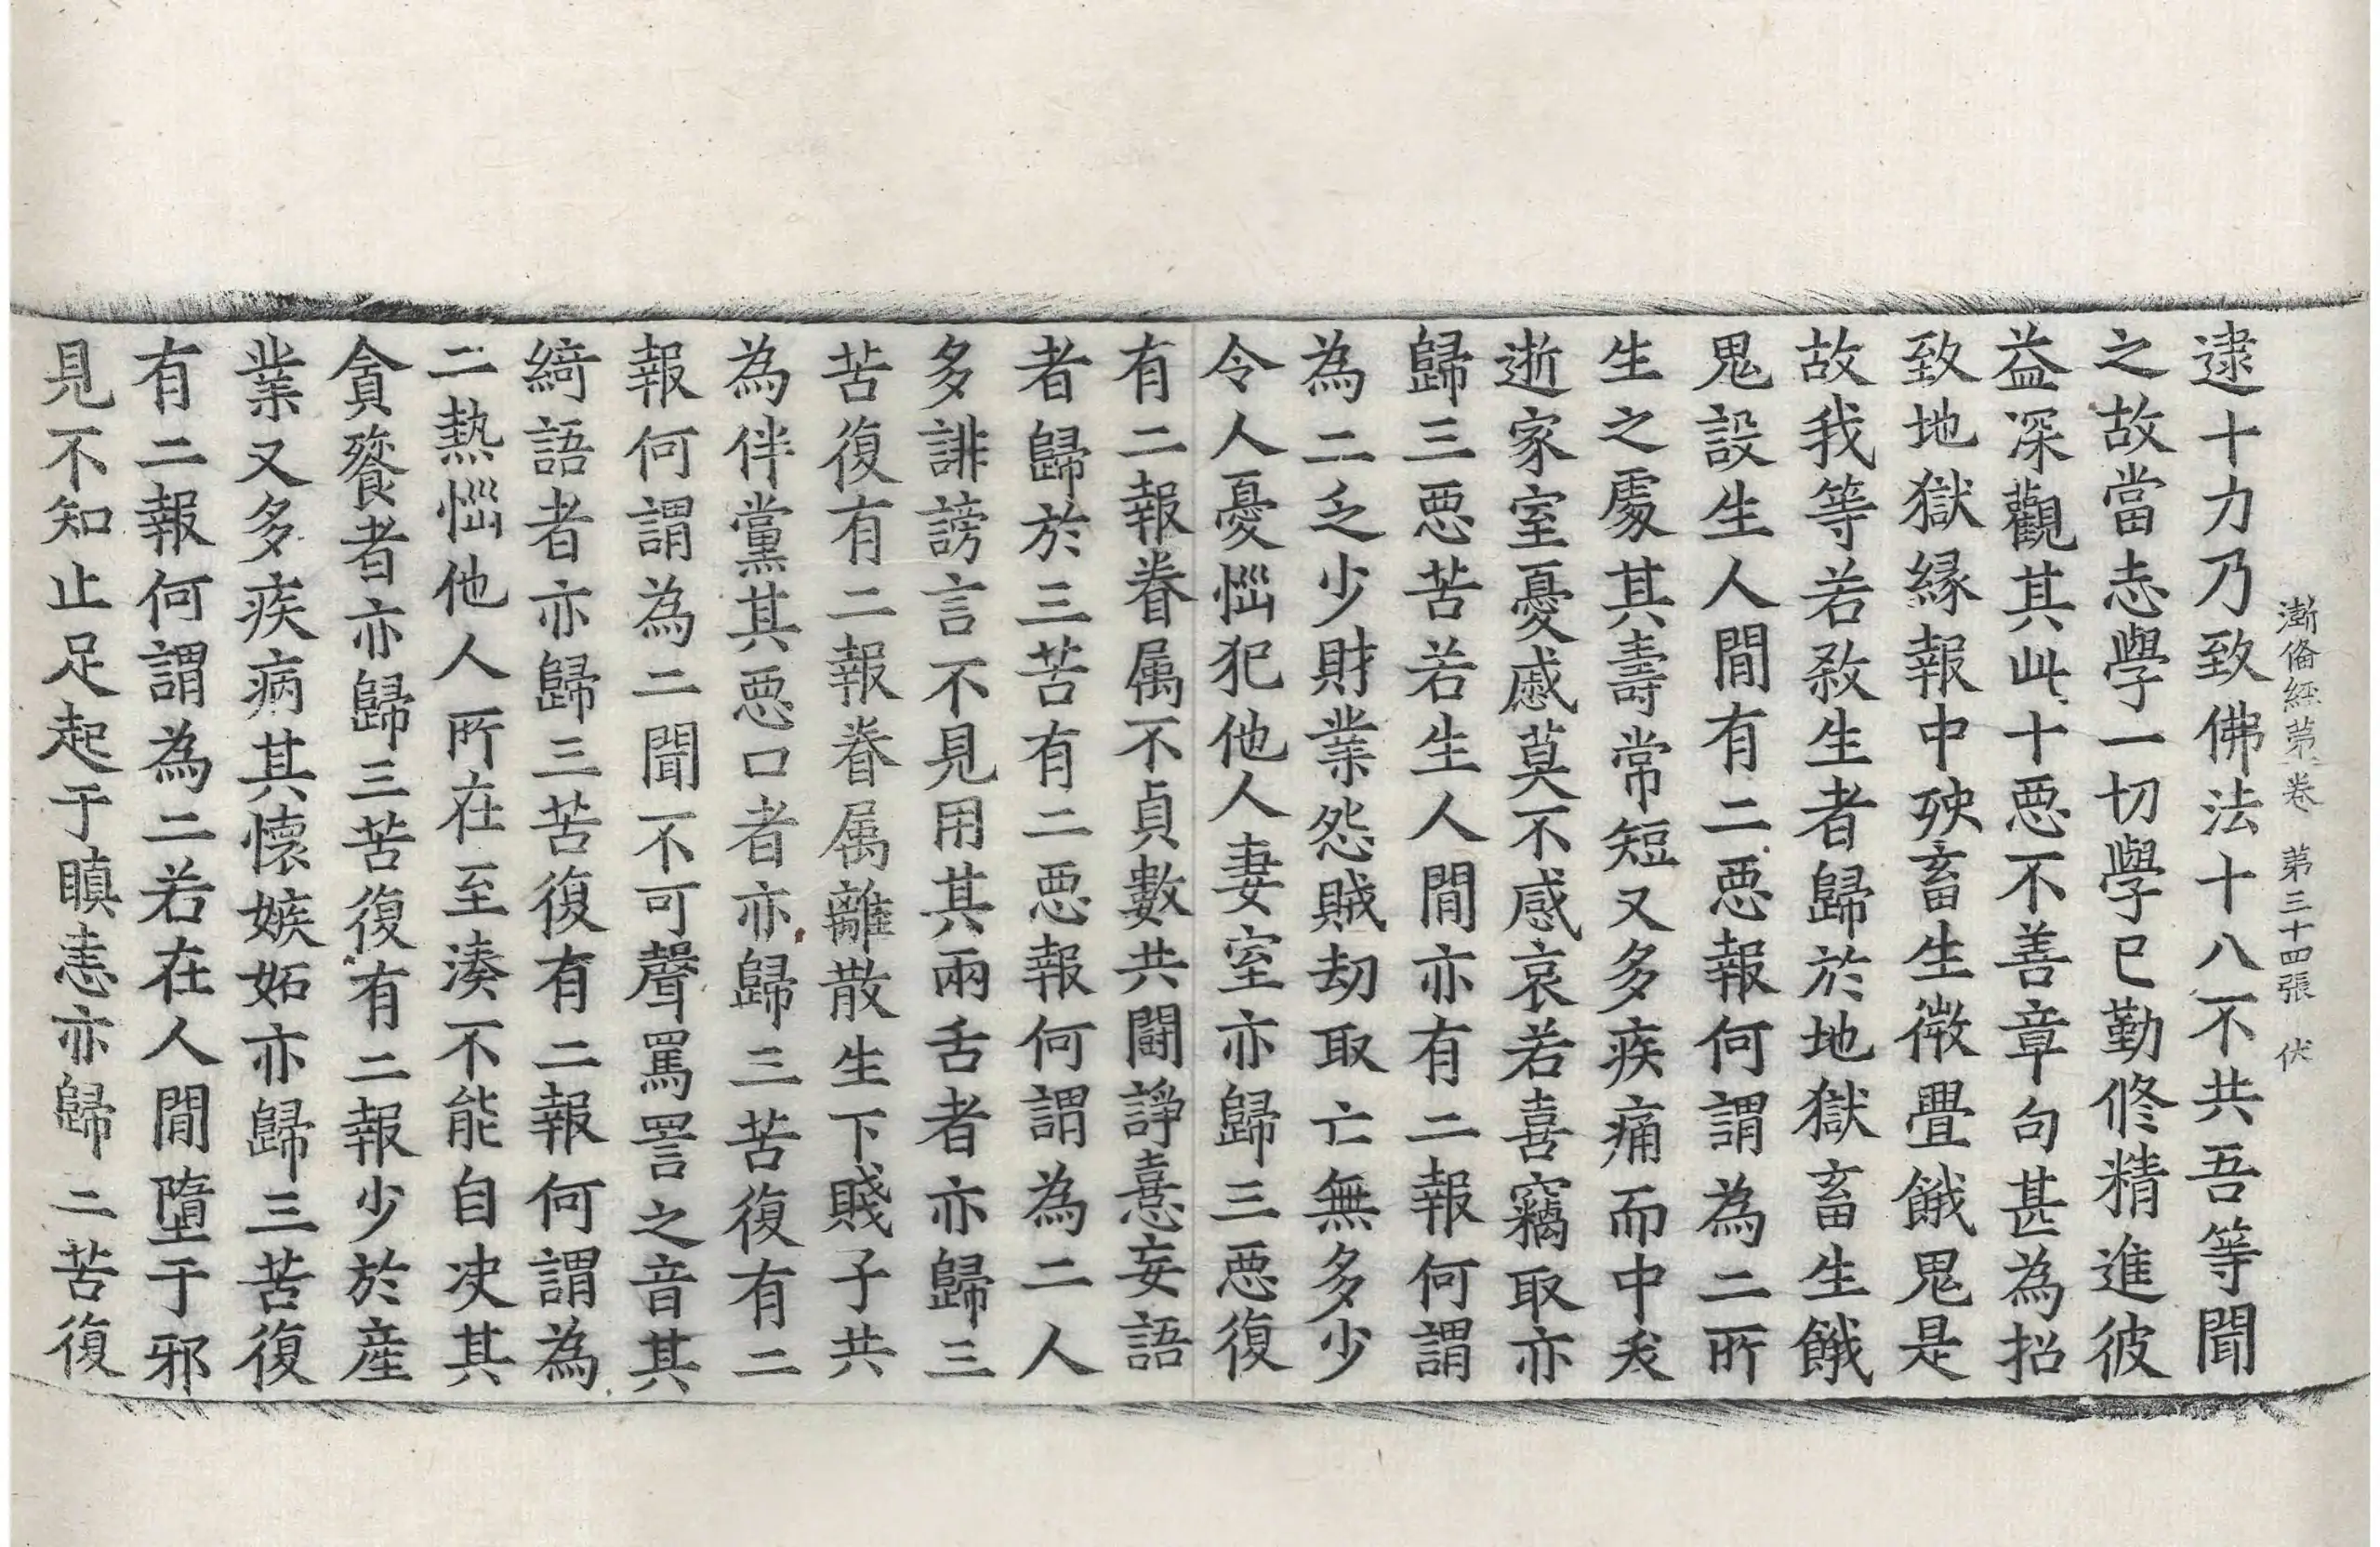 漸備經第一卷 第三十四張 伏
逮十力乃致佛法十八不共吾等聞
之故當志學一切學已勤修精進彼
益深觀其此十惡不善章句甚為招
致地獄縁報中殃畜生微畳餓鬼是
故我等若殺生者歸於地獄畜生餓
鬼設生人間有二惡報何謂為二所
生之處其壽常短又多疾痛而中夭
逝家室憂慼莫不感哀若喜竊取亦
歸三惡苦若生人間亦有二報何謂
為二乏少財業怨賊劫取亡無多少
令人憂惱犯他人妻室亦歸三惡復
有二報眷属不貞數共鬪諍憙妄語
者歸於三苦有二惡報何謂為二人
多誹謗言不見用其兩舌者亦歸三
苦復有二報眷属離散生下賤子共
為伴黨其惡口者亦歸三苦復有二
報何謂為二聞不可聲罵詈之音其
綺語者亦歸三苦復有二報何謂為
二熱惱他人所在至湊不能自决其
貪餮者亦歸三苦復有二報少於産
業又多疾病其懷嫉妬亦歸三苦復
有二報何謂為二若在人間墮于邪
見不知止足起于瞋恚亦歸二苦復